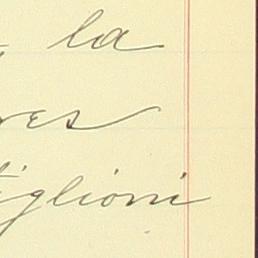 la
res
tiglioni